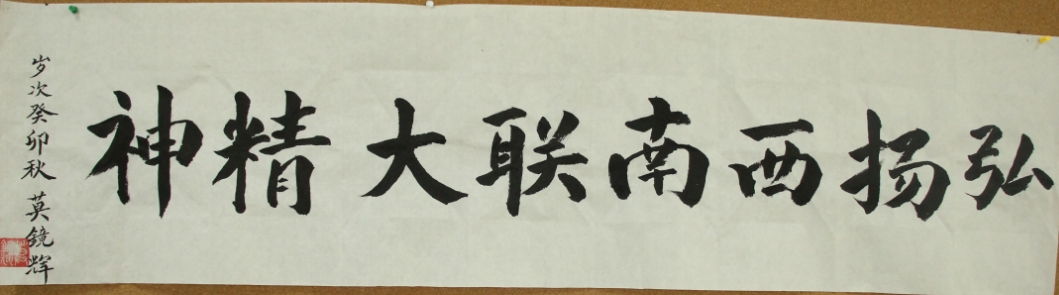 弘扬西南联大精神
岁次癸卯秋 莫镜辉